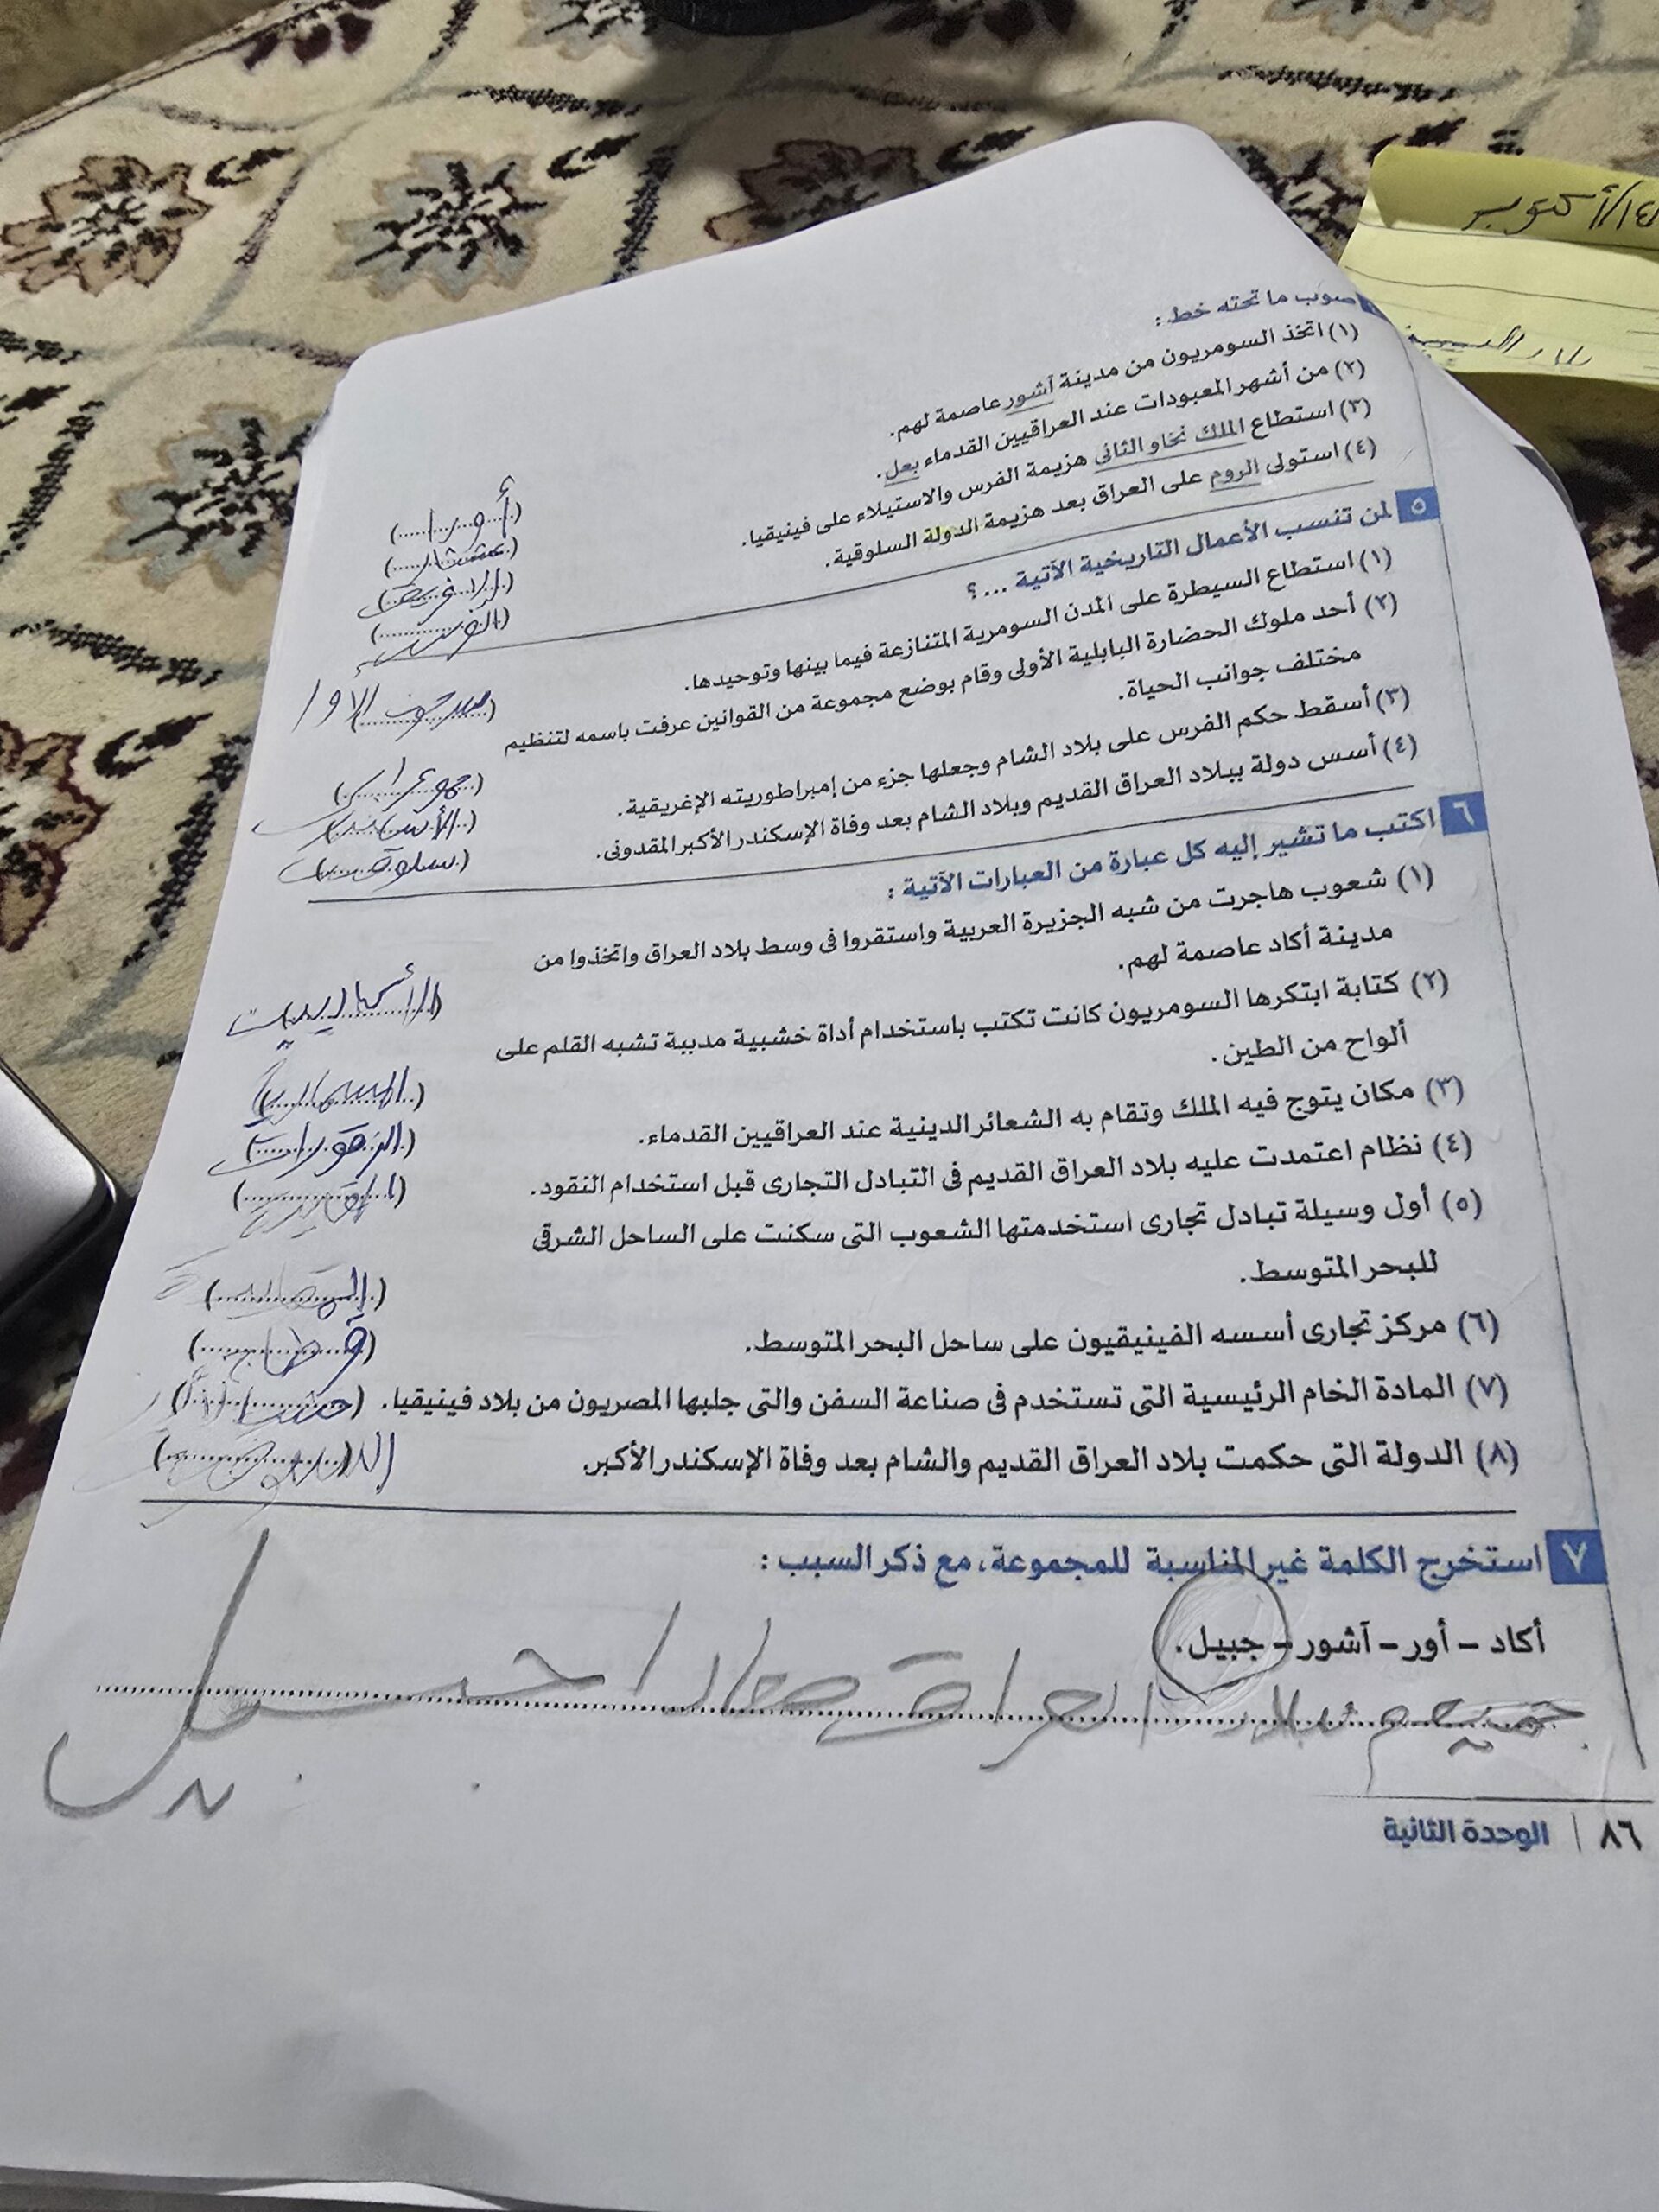 ١٤/أكتوبر
صوب ما تحته خط :
(١) اتخذ السومريون من مدينة آشور عاصمة لهم.
(٢) من أشهر المعبودات عند العراقيين القدماء بعل.
(٣) استطاع الملك نخاو الثانى هزيمة الفرس والاستيلاء على فينيقيا.
(٤) استولى الروم على العراق بعد هزيمة الدولة السلوقية.
(أور)
(عشتار)
(الإغريق)
(الفرس)
٥ لمن تنسب الأعمال التاريخية الآتية ... ؟
(١) استطاع السيطرة على المدن السومرية المتنازعة فيما بينها وتوحيدها.
(سرجون الأول)
(٢) أحد ملوك الحضارة البابلية الأولى وقام بوضع مجموعة من القوانين عرفت باسمه لتنظيم
مختلف جوانب الحياة.
(حمورابى)
(٣) أسقط حكم الفرس على بلاد الشام وجعلها جزء من إمبراطوريته الإغريقية.
(٤) أسس دولة ببلاد العراق القديم وبلاد الشام بعد وفاة الإسكندر الأكبر المقدونى.
٦ اكتب ما تشير إليه كل عبارة من العبارات الآتية :
(١) شعوب هاجرت من شبه الجزيرة العربية واستقروا فى وسط بلاد العراق واتخذوا من
مدينة أكاد عاصمة لهم.
(الأكاديين)
(٢) كتابة ابتكرها السومريون كانت تكتب باستخدام أداة خشبية مدببة تشبه القلم على
ألواح من الطين.
(٣) مكان يتوج فيه الملك وتقام به الشعائر الدينية عند العراقيين القدماء.
(الزقورات)
(٤) نظام اعتمدت عليه بلاد العراق القديم فى التبادل التجارى قبل استخدام النقود.
(٥) أول وسيلة تبادل تجارى استخدمتها الشعوب التى سكنت على الساحل الشرقى
للبحر المتوسط.
(٦) مركز تجارى أسسه الفينيقيون على ساحل البحر المتوسط.
(قرطاج)
(٧) المادة الخام الرئيسية التى تستخدم فى صناعة السفن والتى جلبها المصريون من بلاد فينيقيا.
(٨) الدولة التى حكمت بلاد العراق القديم والشام بعد وفاة الإسكندر الأكبر.
٧ استخرج الكلمة غير المناسبة للمجموعة، مع ذكر السبب :
أكاد – أور – آشور – جبيل.
بلاد العراق جبيل
٨٦ | الوحدة الثانية